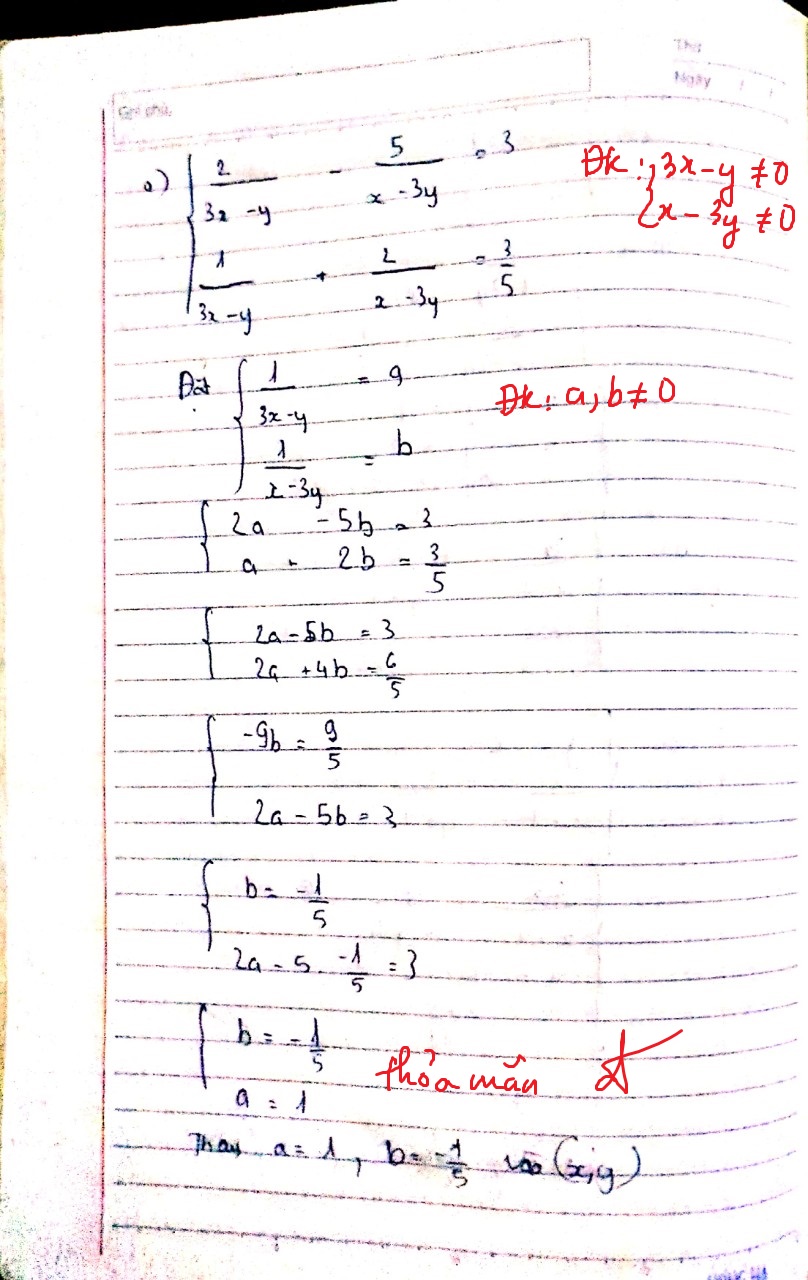 Thứ
Ngày / /
Ghi chú
a) { 2/(3x - y) - 5/(x - 3y) = 3 Đk: { 3x - y ≠ 0
x - 3y ≠ 0
1/(3x - y) + 2/(x - 3y) = 3/5
Đặt { 1/(3x - y) = a Đk: a, b ≠ 0
1/(x - 3y) = b
{ 2a - 5b = 3
a + 2b = 3/5
{ 2a - 5b = 3
2a + 4b = 6/5
{ -9b = 9/5
2a - 5b = 3
{ b = -1/5
2a - 5 . -1/5 = 3
{ b = -1/5 thỏa mãn
a = 1
Thay a = 1, b = -1/5 vào (x, y)